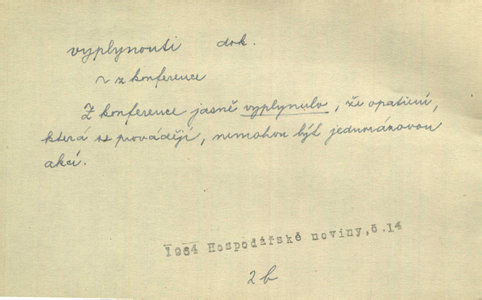 vyplynouti dok.
~ z konference
Z konference jasně vyplynulo, že opatření,
která se provádějí, nemohou být jednorázovou
akcí.
1964 Hospodářské noviny,č.14
2b